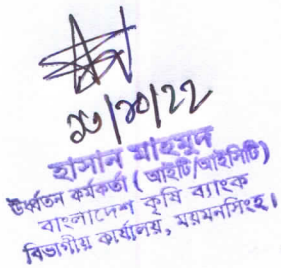 ২৩/১০/২২
হাসান মাহমুদ
উর্ধ্বতন কর্মকর্তা (আইটি/আইসিটি)
বাংলাদেশ কৃষি ব্যাংক
বিভাগীয় কার্যালয়, ময়মনসিংহ।